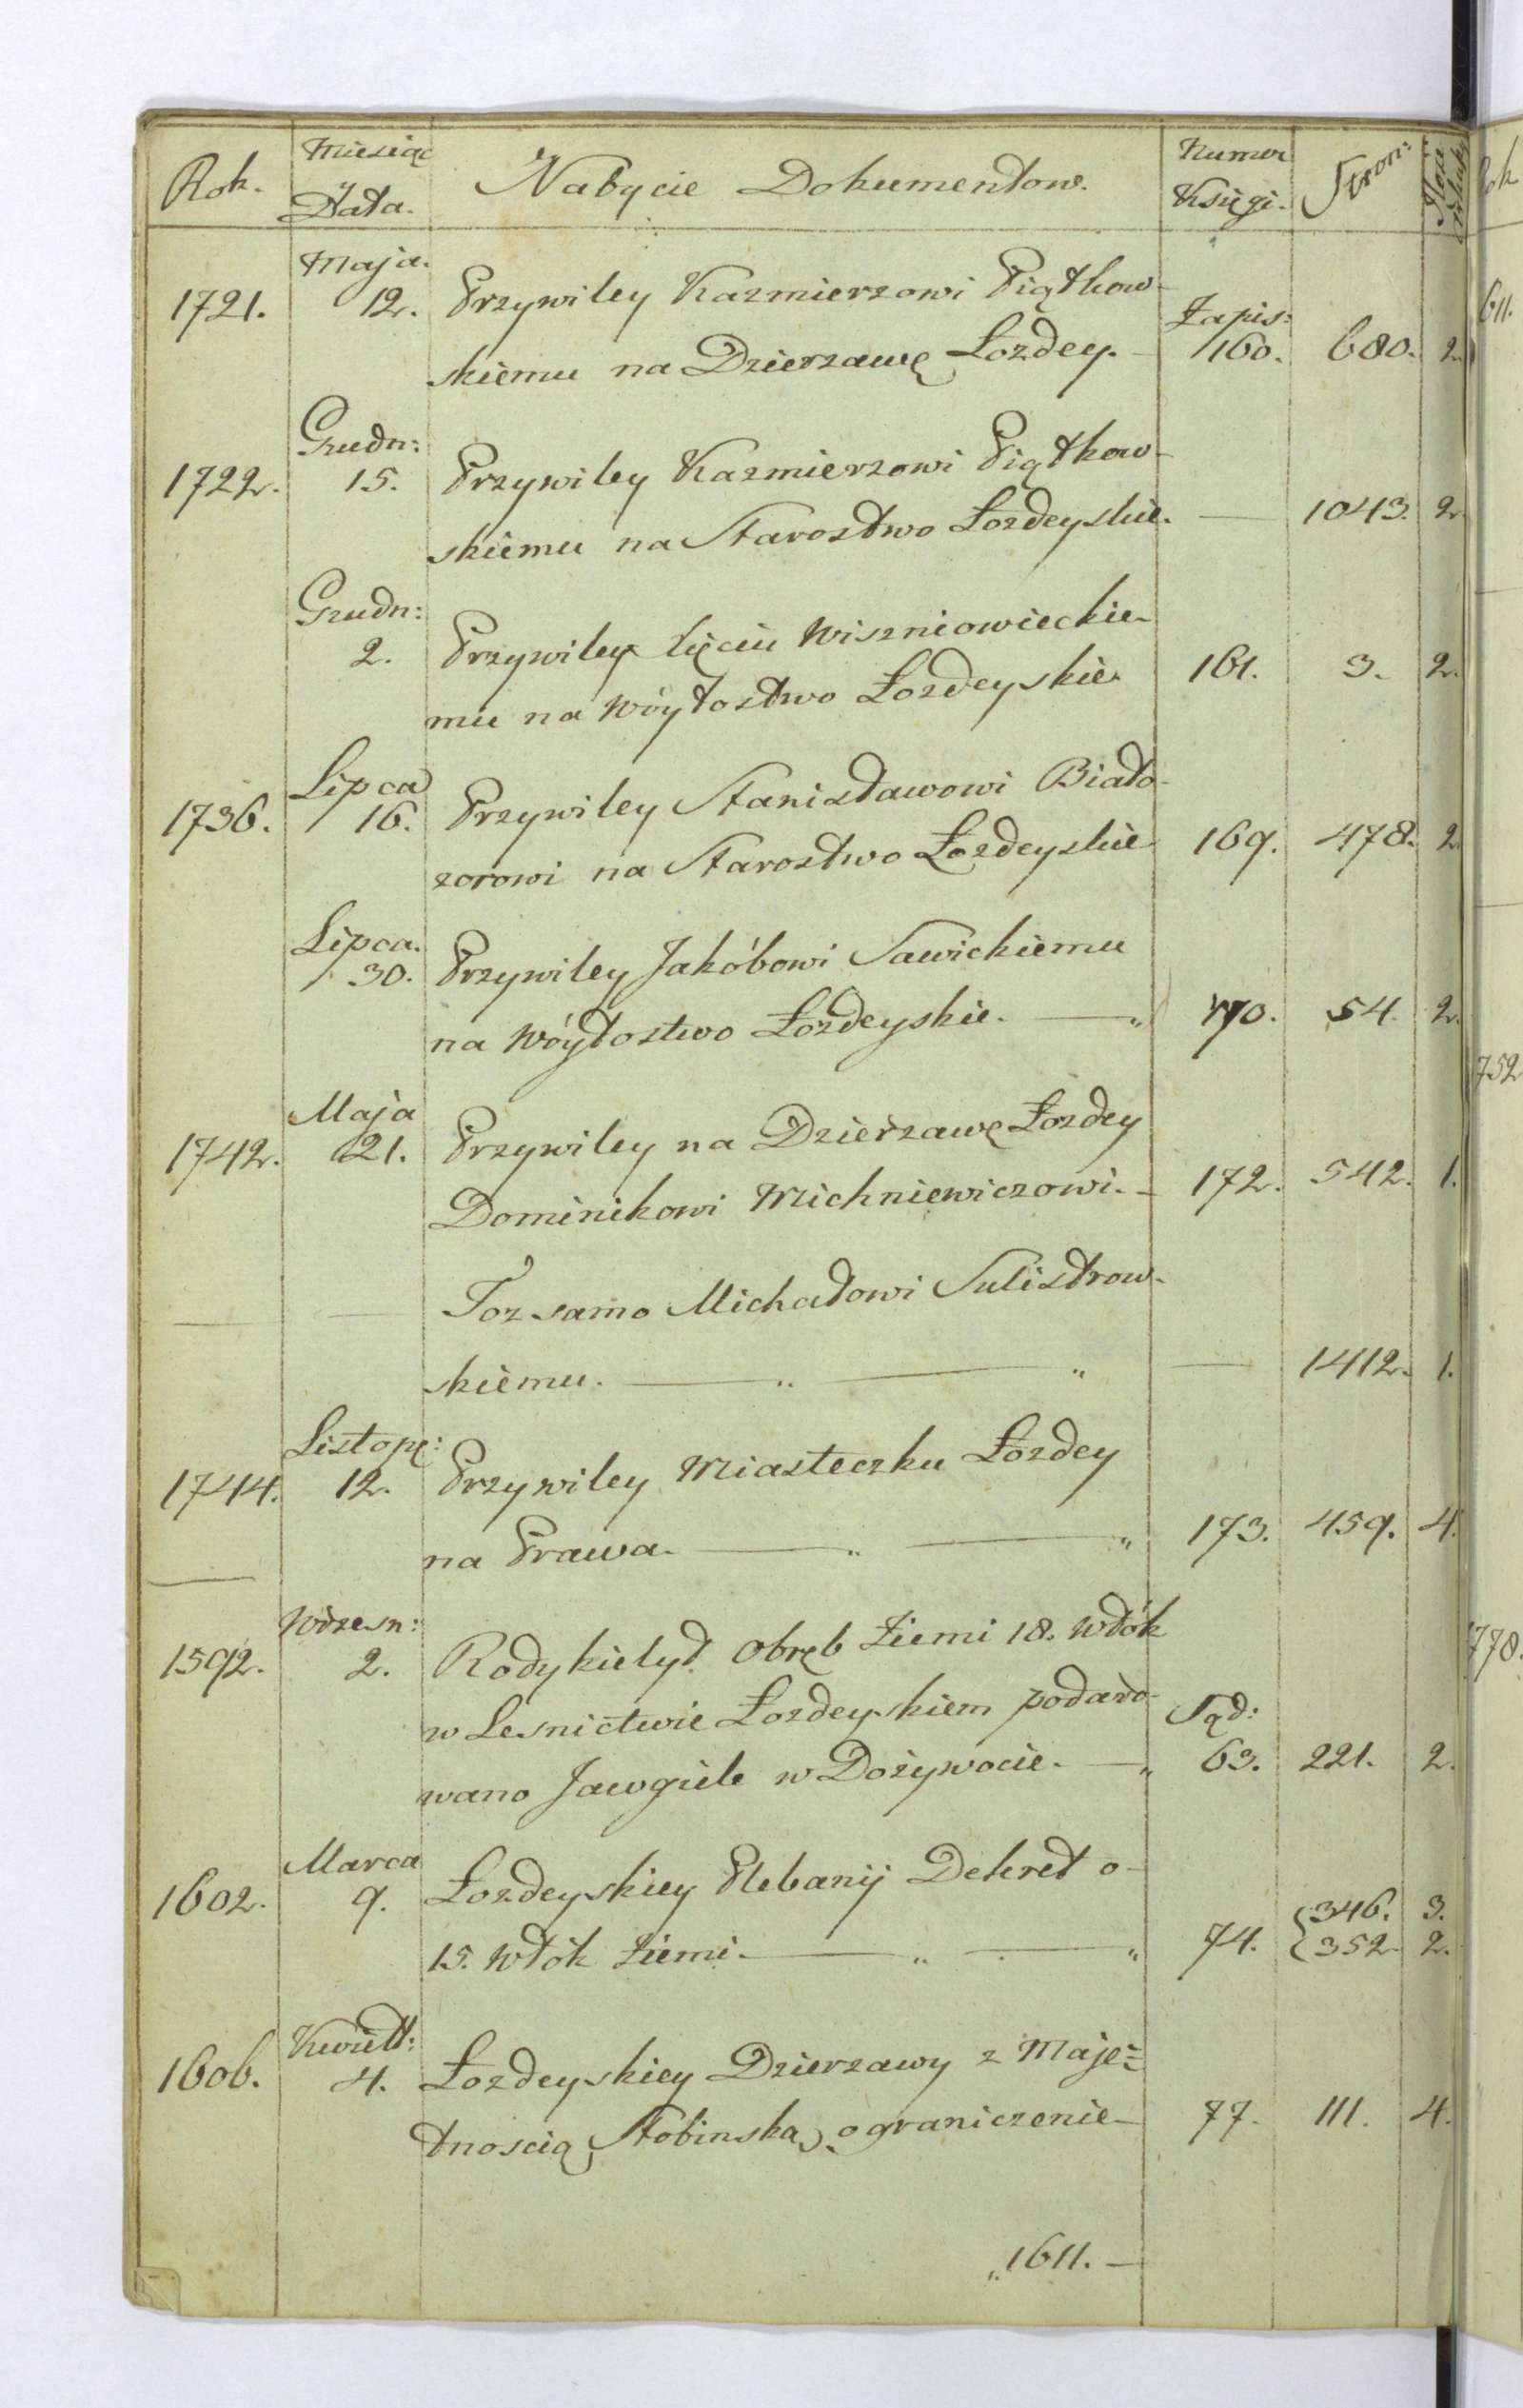 Rok. Miesiąc y Data. Nabycie Dokumentow. Numer Księgi. Stron:
Maja.
1721. 12. Przywiley Kazmierzowi Piątkow-
skiemu na Dzierzawę Łozdey. — Zapis: 160. 680. 2.
Grudn:
1722. 15. Przywiley Kazmierzowi Piątkow-
skiemu na Starostwo Łozdeyskie. — 1043. 2.
Grudn:
2. Przywiley Wiszniowieckie-
mu na Wóytostwo Łozdeyskie 161. 3. 2.
Lipca
1736. 16. Przywiley Stanisławowi Biało-
zorowi na Starostwo Łozdeyskie 169. 478. 2.
Lipca.
30. Przywiley Jakóbowi Sawickiemu
na Wóytostwo Łozdeyskie. — „ 170. 54. 2.
Maja
1742. 21. Przywiley na Dzierzawę Łozdey
Dominikowi Michniewiczowi. — 172. 542. 1.
— — Toz samo Michałowi Sulistrow-
skiemu. — „ — „ — 1412. 1.
Listop:
1744. 12. Przywiley Miasteczku Łozdey
na Prawa. — „ — „ 173. 459. 4.
—
Wrzesn:
1592. 2. Rodykielyd. Obręb Ziemi 18. Włók
w Lesnictwie Łozdeyskiem podaro-
wano Jawgiele w Dożywocie. — „ Sąd: 63. 221. 2.
Marca
1602. 9. Łozdeyskiey Plebanij Dekret o
15. Włók Ziemi. — „ — „ 74. {346. 3.
352. 2.
Kwiet:
1606. 4. Łozdeyskiey Dzierzawy z Maję-
tnoscią Stobinską ograniczenie — 77. 111. 4.
„1611. —
Rok
611.
752
778.